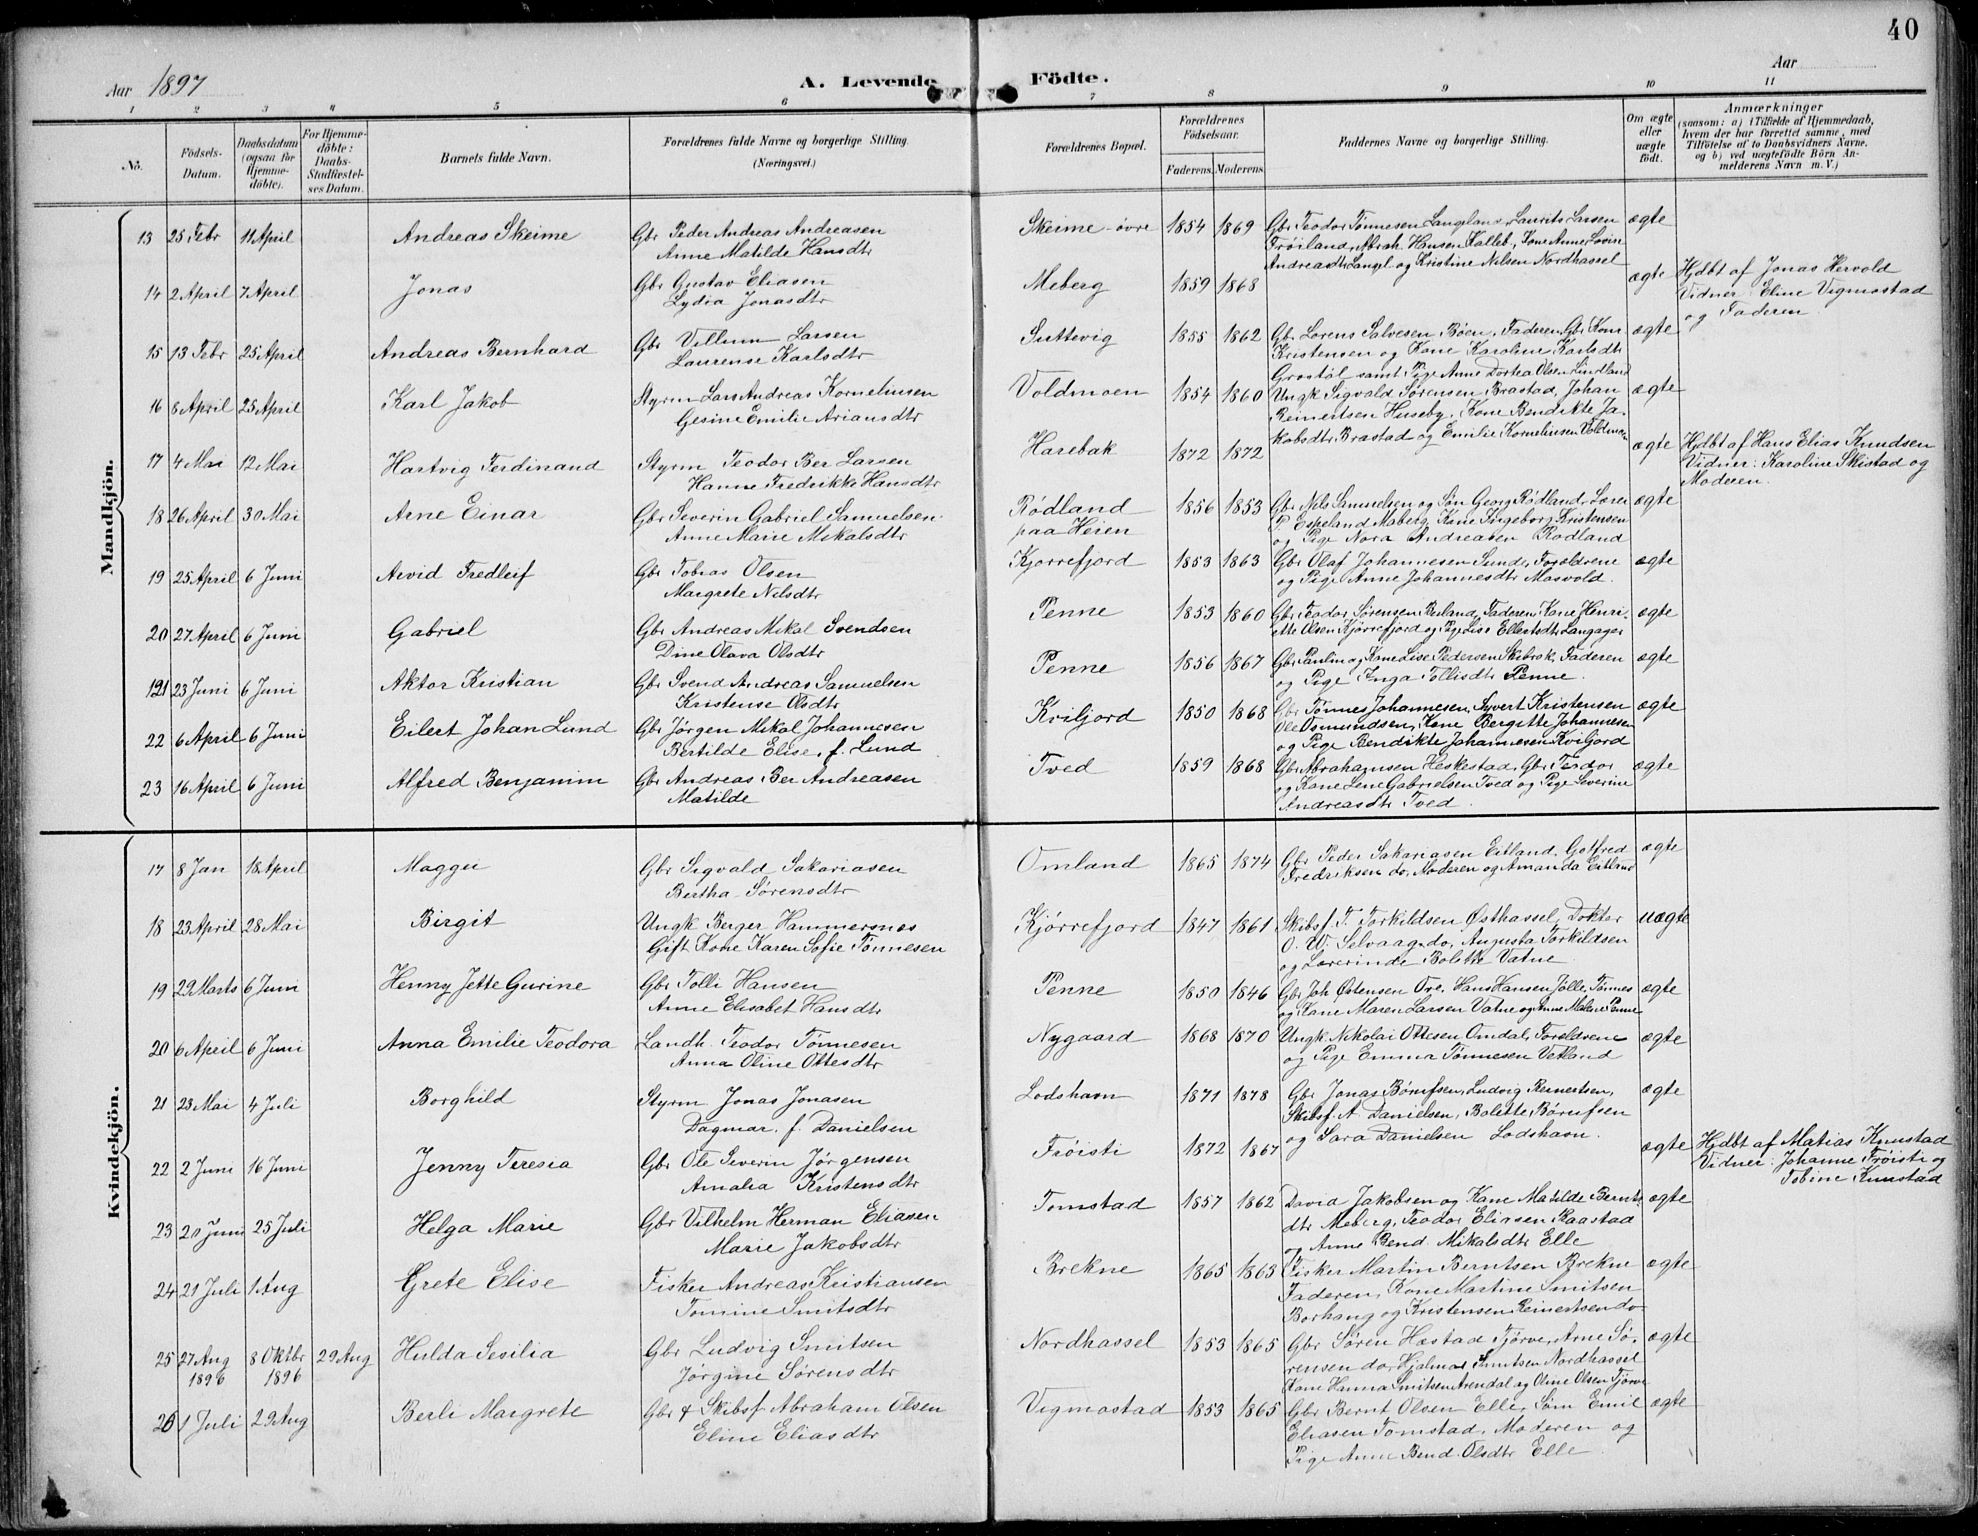 40
Aar 1897
A. Levende Födte.
Aar
1 2 3 4 5 6 7 8 9 10 11
No.
Födsels-Datum.
Daabsdatum (ogsaa for Hjemmedöbte).
For Hjemmedöbte: Daabs-Stadfæstelses Datum.
Barnets fulde Navn.
Forældrenes fulde Navne og borgerlige Stilling. (Næringsvei.)
Forældrenes Bopæl.
Forældrenes Födselsaar.
Faderens. Moderens.
Faddernes Navne og borgerlige Stilling.
Om ægte eller uægte födt.
Anmærkninger
(saasom: a) i Tilfælde af Hjemmedaab,
hvem der har forrettet samme, med
Tilföielse af to Daabsvidners Navne,
og b) ved uægtefödte Börn An-
melderens Navn m. V.)
Mandkjön.
13 25 Febr 11 April Andreas Skeime Gbr Peder Andreas Andreasen Skeime övre 1854 1869 Gbr Teodor Tönnesen Langeland, Laurits Larsen ægte
Anne Matilde Hansdtr Fröiland, Abrah. Hansen Kalleb., Kone Anne Lovise
Andreasdtr Langel og Kristine Nilsen Nordhassel
14 2 April 7 April Jonas Gbr Gustav Eliasen Meberg 1859 1868 ægte Hjdbt af Jonas Hervold
Lydia Jonasdtr Vidner: Eline Vigmostad
og Faderen
15 13 Febr 25 April Andreas Bernhard Gbr Villum Larsen Suttevig 1855 1862 Gbr Lorens Salvesen Böen, Faderen, Gbr Korn. ægte
Laurense Karlsdtr Kristensen og Kone Karoline Karlsdtr
Grostöl samt Pige Anne Dortea Olsen Lindland
16 8 April 25 April Karl Jakob Styrm Lars Andreas Korneliusen Voldmoen 1854 1860 Ungk Sigvald Sörensen Brastad, Johan ægte
Gesine Emilie Ariansdtr Reinertsen Huseby, Kone Bendikte Ja-
kobsdtr Brastad og Emilie Korneliusen Voldmoen
17 4 Mai 12 Mai Hartvig Ferdinand Styrm Teodor Ber Larsen Harebak 1872 1872 ægte Hjdbt af Hans Elias Knudsen
Hanne Fredrikke Hansdtr Vidner: Karoline Skistad og
Moderen.
18 26 April 30 Mai Arne Einar Gbr Severin Gabriel Samuelsen Rödland 1856 1853 Gbr Nils Samuelsen og Sön Georg Rödland, Lærer ægte
Anne Marie Mikalsdtr paa Heien P. Espeland Maberg, Kone Ingeborg Kristensen
og Pige Nora Andreasen Rödland
19 25 April 6 Juni Arvid Fredleif Gbr Tobias Olsen Kjörrefjord 1853 1863 Gbr Olaf Johannesen Sunde, Forældrene ægte
Margrete Nilsdtr og Pige Anne Johannesdtr Mosvold.
20 27 April 6 Juni Gabriel Gbr Andreas Mikal Svendsen Penne 1853 1860 Gbr Teodor Sörensen Berland, Faderen, Kone Henri- ægte
Dine Olava Olsdtr ette Olsen Kjörrefjord og Pige Lise Ellertsdtr Langager
21 23 Juni 6 Juni Aktor Kristian Gbr Svend Andreas Samuelsen Penne 1856 1867 Gbr Paulin og Kone Lise Pedersen Skibrok, Faderen ægte
Kristense Olsdtr og Pige Inga Tollisdtr Penne.
22 6 April 6 Juni Eilert Johan Lund Gbr Jörgen Mikal Johannesen Kviljord 1850 1868 Gbr Tönnes Johannesen, Syvert Kristensen ægte
Bertilde Elise, f. Lund Ole Osmundsen, Kone Bergitte Johannesen
og Pige Bendikte Johannesen Kviljord
23 16 April 6 Juni Alfred Benjamin Gbr Andreas Ber Andreasen Tved 1859 1868 Gbr Abrahamsen Heskestad, Gbr Teodor ægte
Matilde og Kone Lene Gabrielsen Tved og Pige Severine
Andreasdtr Tved.
Kvindekjön.
17 8 Jan 18 April Maggii Gbr Sigvald Sakariasen Omland 1865 1874 Gbr Peder Sakariasen Eitland, Gotfred ægte
Bertha Sörensdtr Fredriksen do, Moderen og Amanda Eitland
18 23 April 28 Mai Birgit Ungk Berger Hammersnes Kjörrefjord 1847 1861 Skibsf. T. Torkildsen Østhassel, Doktor uægte
Gift Kone Karen Sofie Tönnesen O. W. Selvaag do, Augusta Torkildsen
og Lærerinde Bolette Vatne
19 29 Marts 6 Juni Henny Jette Gurine Gbr Tolli Hansen Penne 1850 1846 Gbr Joh Østensen Ore, Hans Hansen Jölle, Tönnes ægte
Anne Elisabet Hansdtr og Kone Maren Larsen Vatne og Anne Malene Penne
20 6 April 6 Juni Anna Emilie Teodora Landh. Teodor Tönnesen Nygaard 1868 1870 Ungk Nikolai Ottesen Omdal, Forældrene ægte
Anna Oline Ottesdtr og Pige Emma Tönnesen Vetland
21 23 Mai 4 Juli Borghild Styrm Jonas Jonasen Lodshavn 1871 1878 Gbr Jonas Börufsen, Ludvig Reinertsen, ægte
Dagmar, f. Danielsen Skibsf. A. Danielsen, Bolette Börufsen
og Sara Danielsen Lodshavn.
22 2 Juni 16 Juni Jenny Teresia Gbr Ole Severin Jörgensen Fröisti 1872 1867 ægte Hjdbt af Matias Kumstad
Amalia Kristensdtr Vidner: Johanne Fröisti og
Tobine Kumstad
23 20 Juni 25 Juli Helga Marie Gbr Vilhelm Herman Eliasen Tomstad 1857 1862 David Jakobsen og Kone Matilde Bernts- ægte
Marie Jakobsdtr dtr Meberg, Teodor Eliasen Raastad
og Anne Bend Mikalsdtr Elle
24 21 Juli 1 Aug Grete Elise Fisker Andreas Kristiansen Brekne 1865 1863 Fisker Martin Berntsen Brekne ægte
Tomine Smitsdtr Faderen, Kone Martine Smitsen
Borhaug og Kristensen Reinertsen do
25 27 Aug 1896 8 Oktbr 1896 29 Aug Hulda Sesilia Gbr Ludvig Smitsen Nordhassel 1853 1865 Gbr Sören Hæstad Tjörve, Arne Sö- ægte
Jörgine Sörensdtr rensen do, Hjalmar Smitsen Nordhassel
Kone Hanna Smitsen Arendal og Oline Olsen Tjörve
26 1 Juli 29 Aug Berli Margrete Gbr & Skibsf Abraham Olsen Vigmostad 1853 1865 Gbr Bernt Olsen Elle, Sön Emil ægte
Eline Eliasdtr Eliasen Tomstad, Moderen og
Pige Anne Bend. Olsdtr Elle.